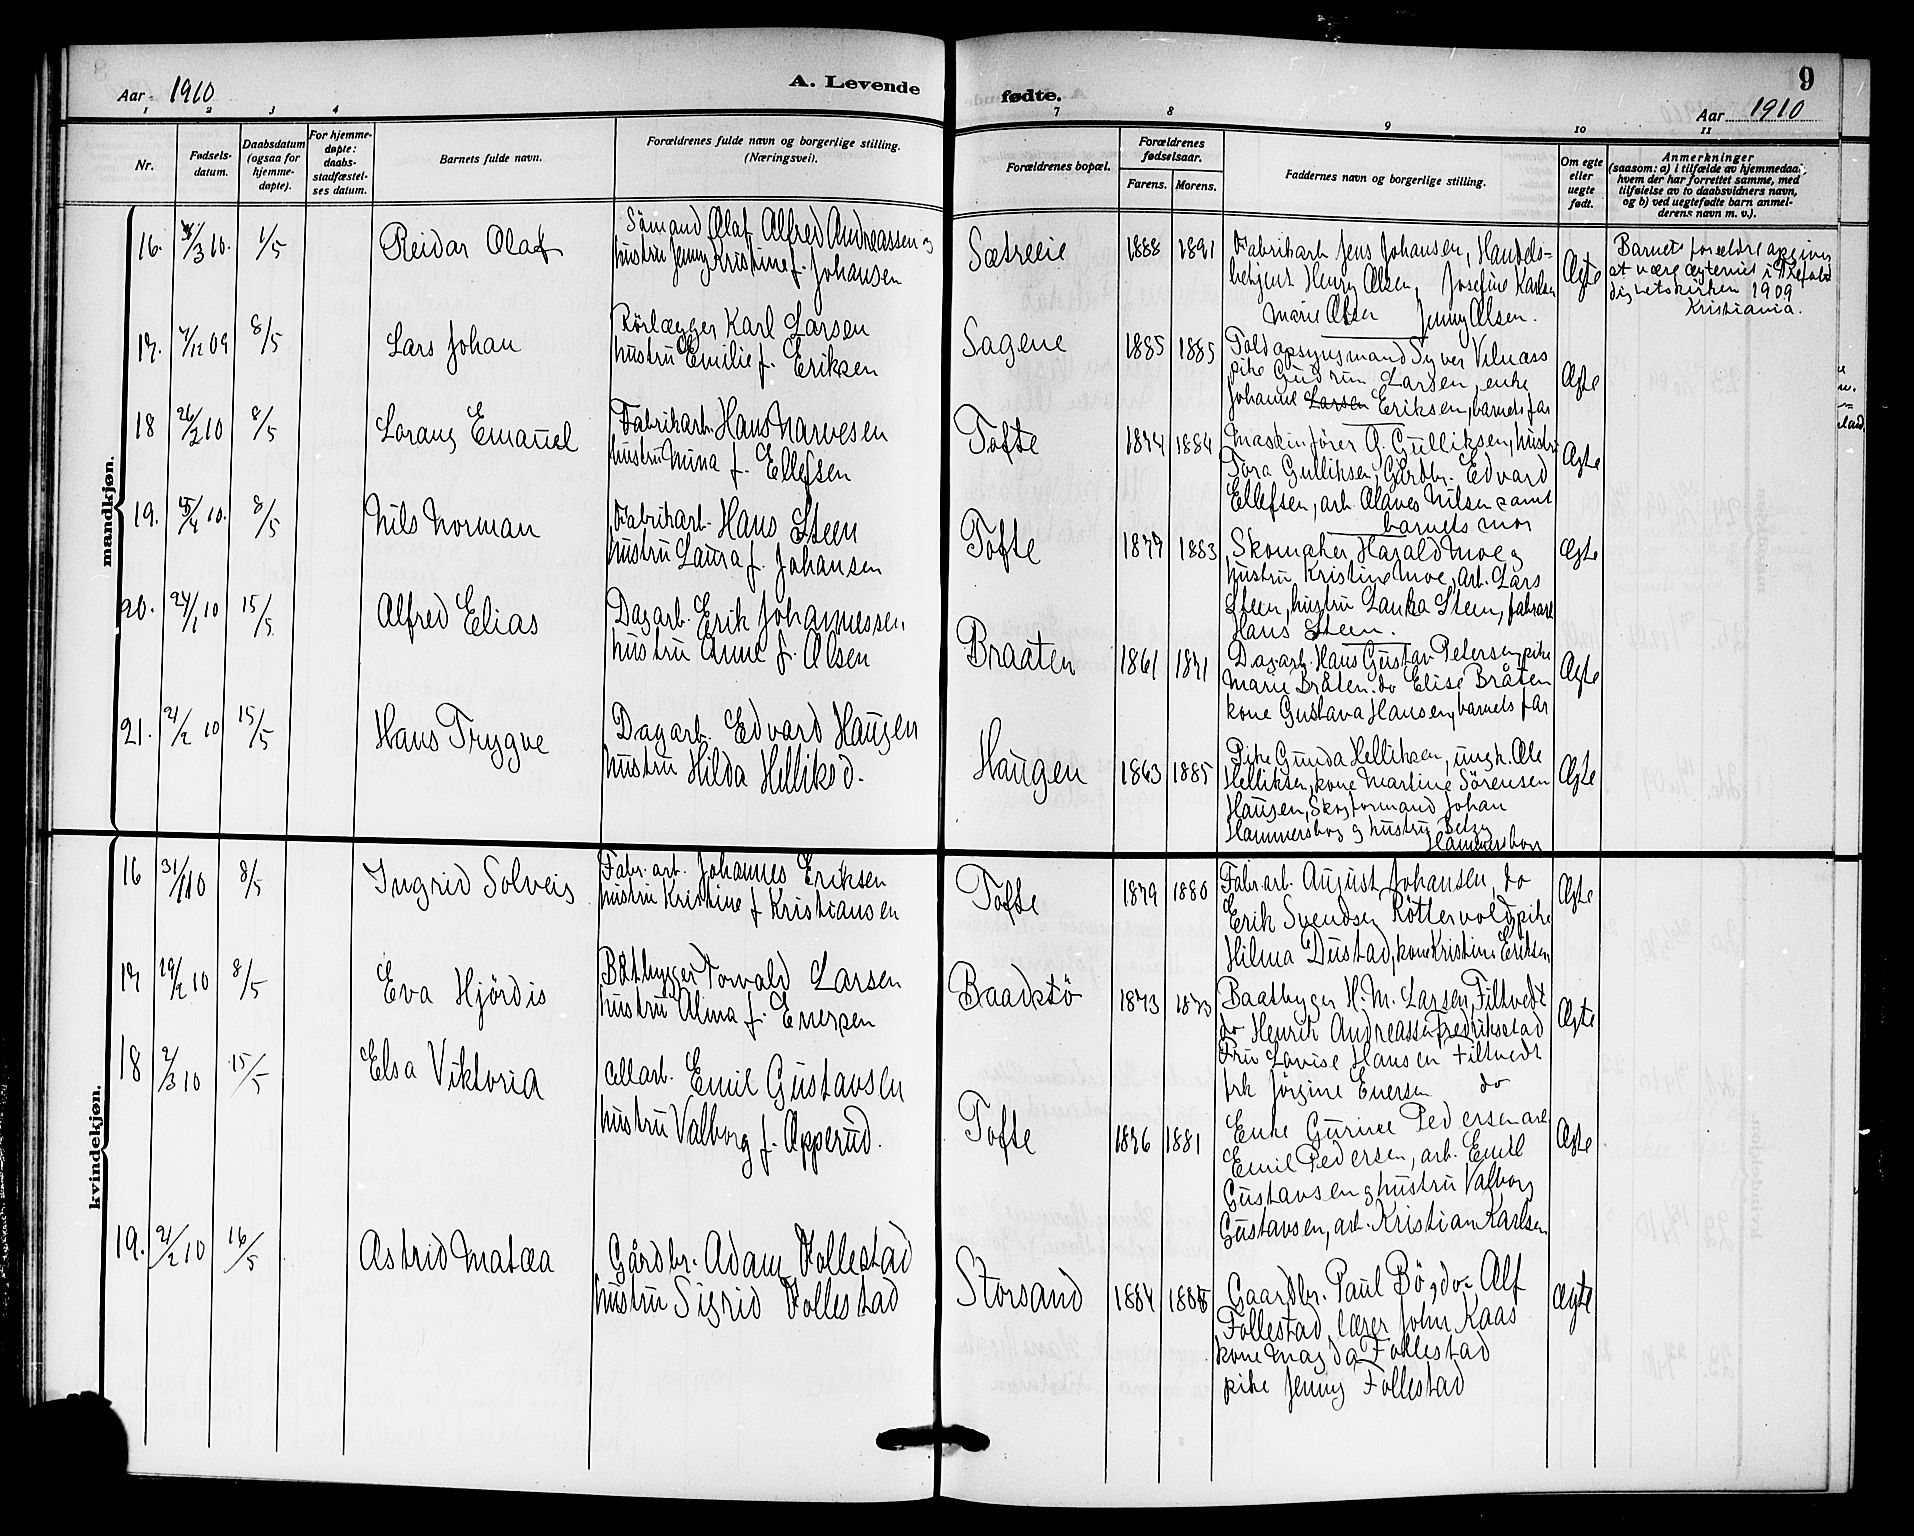 A. Levende
fødte.
9
Aar 1910
Aar 1910
1 2 3 4
7 8 9 10 11
Nr.
Fødsels-
datum.
Daabsdatum
(ogsaa for
hjemme-
døpte).
For hjemme-
døpte:
daabs-
stadfæstel-
ses datum.
Barnets fulde navn.
Forældrenes fulde navn og borgerlige stilling.
(Næringsvei).
Forældrenes bopæl.
Forældrenes
fødselsaar.
Farens. Morens.
Faddernes navn og borgerlige stilling.
Om egte
eller
uegte
født.
Anmerkninger
(saasom: a) i tilfælde av hjemmedaab,
hvem der har forrettet samme, med
tilføielse av to daabsvidners navn,
og b) ved uegtefødte barn anmel-
derens navn m. v.).
mandkjøn.
16. /3 10. 1/5
Reidar Olaf
Sömand Olaf Alfred Andreassen og
hustru Jenny Kristine f. Johansen
Sætreeie
1888 1891
Fabrikarb. Jens Johansen, Handels-
betjent Henry Olsen, Josefine Karlsen
Marie Olsen Jenny Olsen.
Ægte
Barnets forældre opgives
at være egteviet i Trefol-
dighetskirken 1909
Kristiania.
17. 7/12 09 8/5
Lars Johan
Rörlægger Karl Larsen
hustru Emilie f. Eriksen
Sagene
1885 1885
Toldopsynsmand Syver Velnæss
pike Gudrun Larsen, enke
Johanne Larsen Eriksen, barnets far
Ægte
18 26/2 10 8/5
Lorang Emanuel
Fabrikarb. Hans Narvesen
hustru Nina f. Ellefsen
Tofte
1874 1884
Maskinfører A. Gulliksen, hustru
Tora Gulliksen, Gårdbr. Edvard
Ellefsen, arb. Olaves Nilsen samt
barnets mor
Ægte
19. /4 10. 8/5
Nils Norman
Fabrikarb. Hans Steen
hustru Laura f. Johansen
Tofte
1877 1883
Skomaker Harald Moe og
hustru Kristine Moe, arb. Lars
Steen, hustru Lanka Steen, fabrarb
Hans Steen.
Ægte
20. 24/1 10 15/5
Alfred Elias
Dagarb. Erik Johannessen,
hustru Anne f. Olsen
Braaten
1861 1871
Dagarb. Hans Gustav Petersen, pike
Marie Bråten. do Elise Bråten
kone Gustava Hansen, barnets far
Ægte
21. 21/2 10 15/5
Hans Trygve
Dagarb. Edvard Haugen
hustru Hilda Helliksd.
Haugen
1863 1885
Pike Gunda Helliksen, ungk. Ole
Helliksen, kone Martine Sörensen
Haugen, Skogformand Johan
Hammersbog og hustru Betzy
Hammersborg
Ægte
kvindekjøn.
16 31/1 10 8/5
Ingrid Solveig
Fabr. arb. Johannes Eriksen
hustru Kristine f Kristiansen
Tofte
1879 1880
Fabr. arb. August Johansen, do
Erik Svendsen Röttervold, pike
Hilma Dustad, kone Kristine Eriksen
Ægte
17 19/2 10 8/5
Eva Hjördis
Båtbygger Torvald Larsen
hustru Alma f. Enersen
Baadstö
1873 1873
Baatbyger H. M. Larsen, Filtvedt
do Henrik Andreassen Fredriksstad
Fru Lovise Hansen Filtvedt
frk Jörgine Enersen do
Ægte
18 2/3 10 15/5
Elsa Viktoria
cellarb. Emil Gustavsen
hustru Valborg f. Opperud.
Tofte
1876 1881
Enke Gurine Pedersen arb
Emil Pedersen, arb. Emil
Gustavsen og hustru Valborg
Gustavsen, arb. Kristian Karlsen
Ægte
19. 21/2 10 16/5
Astrid Matæa
Gårdbr. Adam Follestad
hustru Sigrid Follestad
Storsand
1884 1888
Gaardbr. Paul Bö, do Alf
Follestad, lærer John Kaas
kone Magda Follestad
pike Jenny Follestad
Ægte